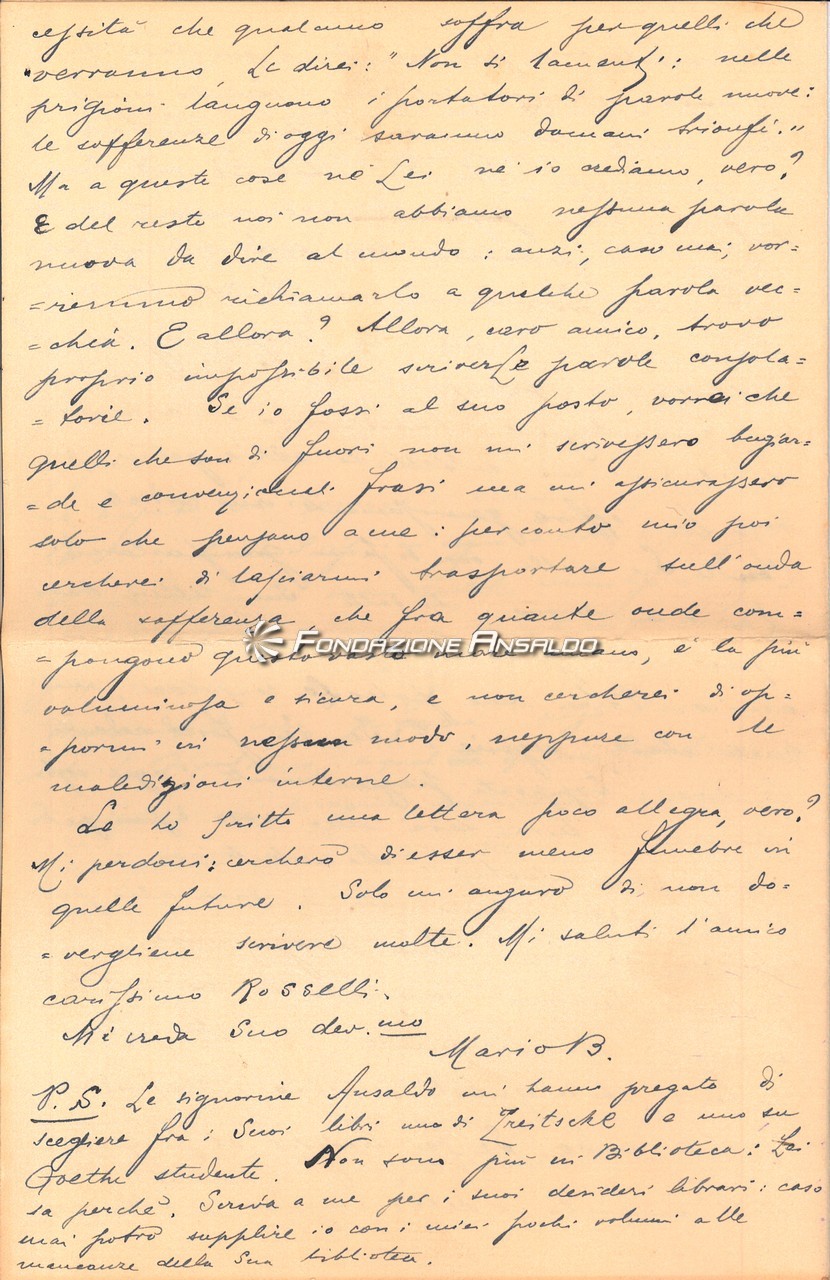 cessità che qualcuno soffra per quelli che
verranno, Le direi: "Non si lamenti: nelle
prigioni languono i portatori di parole nuove:
le sofferenze di oggi saranno domani trionfi."
Ma a queste cose nè Lei nè io crediamo, vero?
E del resto noi non abbiamo nessuna parola
nuova da dire al mondo: anzi, caso mai, vor=
=remmo richiamarlo a qualche parola vec=
=chia. E allora? Allora, caro amico, trovo
proprio impossibile scriverLe parole consola=
=torie. Se io fossi al suo posto, vorrei che
quelli che son di fuori non mi scrivessero bugiar=
=de e convenzionali frasi ma mi assicurassero
solo che pensano a me: per conto mio poi
cercherei di lasciarmi trasportare sull'onda
della sofferenza, che fra quante onde com=
FONDAZIONE ANSALDO
=pongono questo vasto mare umano, è la più
voluminosa e sicura, e non cercherei di op=
=pormi in nessun modo, neppure con le
maledizioni interne.
Le ho scritto una lettera poco allegra, vero?
Mi perdoni: cercherò di esser meno funebre in
quelle future. Solo mi auguro di non do=
=vergliene scrivere molte. Mi saluti l'amico
carissimo Rosselli.
Mi creda Suo dev.mo
Mario B.
P.S. Le signorine Ansaldo mi hanno pregato di
scegliere fra i Suoi libri uno di Treitschke e uno su
Goethe studente. Non sono più in Biblioteca: Lei
sa perchè. Scriva a me per i suoi desideri librari: caso
mai potrò supplire io con i miei pochi volumi alle
mancanze della Sua biblioteca.